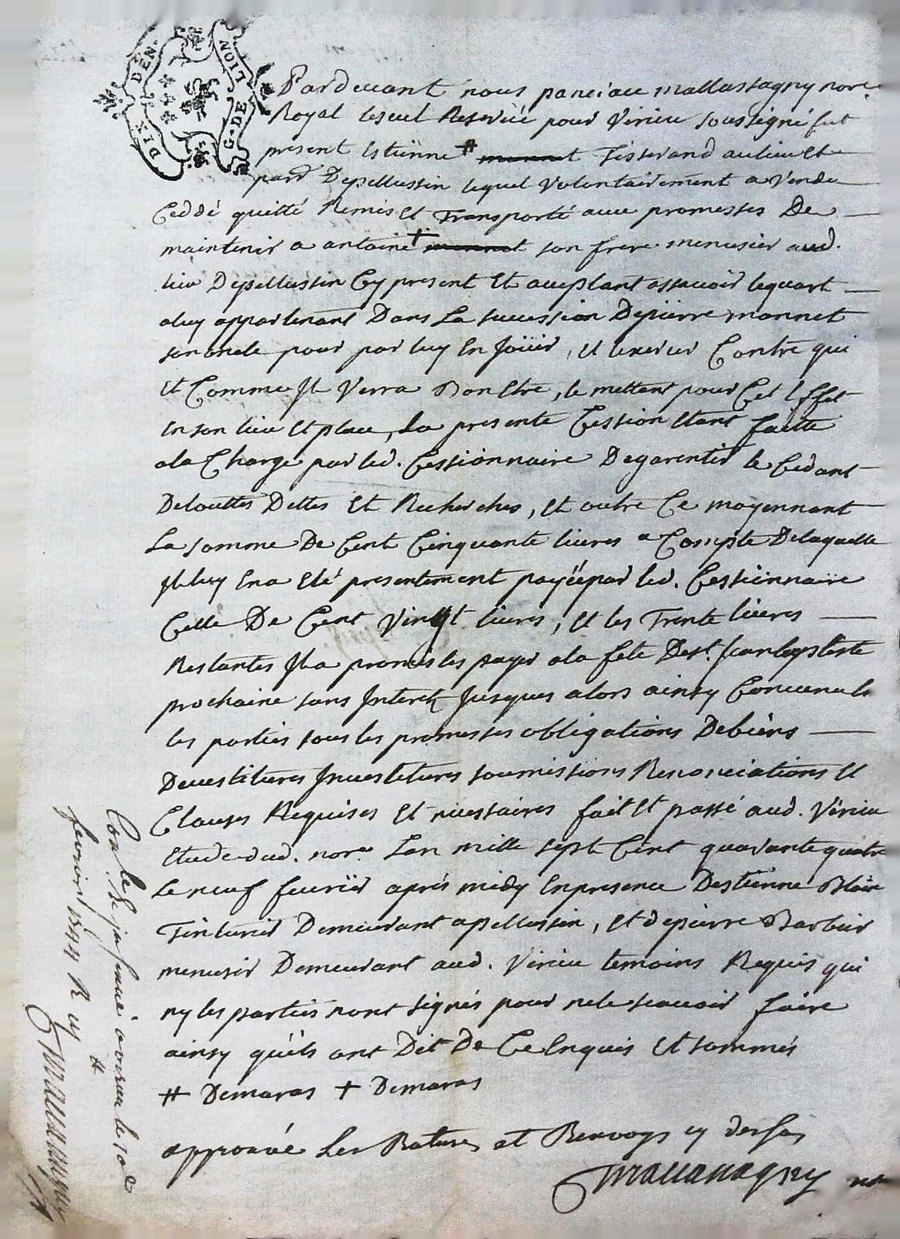 DIX DEN.
G. DE LION
Pardevant nous pancrace mallassagny nore.
Royal seul Reservé pour Virieu soussigné fut
present Estienne # monnet Tisserand au lieu et
parr Depellussin lequel volontairement a Vendu
Ceddé quitté Remis et Transporté avec promesses De
maintenir a antoine + monnet son frere menusier aud.
lieu Depellussin Cy present Et aceptant assavoir le quart
aluy appartenant Dans La succession Depierre monnet
son oncle pour par luy En Joüir, et exercer Contre qui
et Comme Jl Verra Bon Estre, le mettant pour Cet Effet
en son lieu et place, La presente Cession Etant faitte
ala Charge par led. Cessionnaire Degarentir le Cedant
Detouttes Dettes Et Recherches, Et outre Ce moyennant
La somme De Cent Cinquante livres a Compte Delaquelle
Jl luy En a Eté presentement payé par led. Cessionnaire
Celle De Cent Vingt livres, Et les Trente livres
Restantes Jl a promis les payer ala fete De st. Jean baptiste
prochaine sans Interets Jusques alors ainsy Convenu
les parties sous les promesses obligations Debiens
Devestitures Jnvestitures soumissions Renonciations Et
Clauses Requises Et necessaires fait Et passé aud. Virieu
Etude dud. nore. Lan mille sept Cent quarante quatre
Le neuf fevrier aprés midy En presence Destienne
Tinturier Demeurant apellussin, Et depierre Barbier
menusier Demeurant aud. Virieu temoins Requis qui
ny les parties n'ont signés pour ne le scavoir faire
ainsy qu'ils ont Dit De Ce Enquis Et sommés
# Demaras + Demaras
approuvé Les Ratures et Renvoys cy dessus
Mallassagny nore
Con.lé à virieu le 10e
fevrier 1744 R
Mallassagny